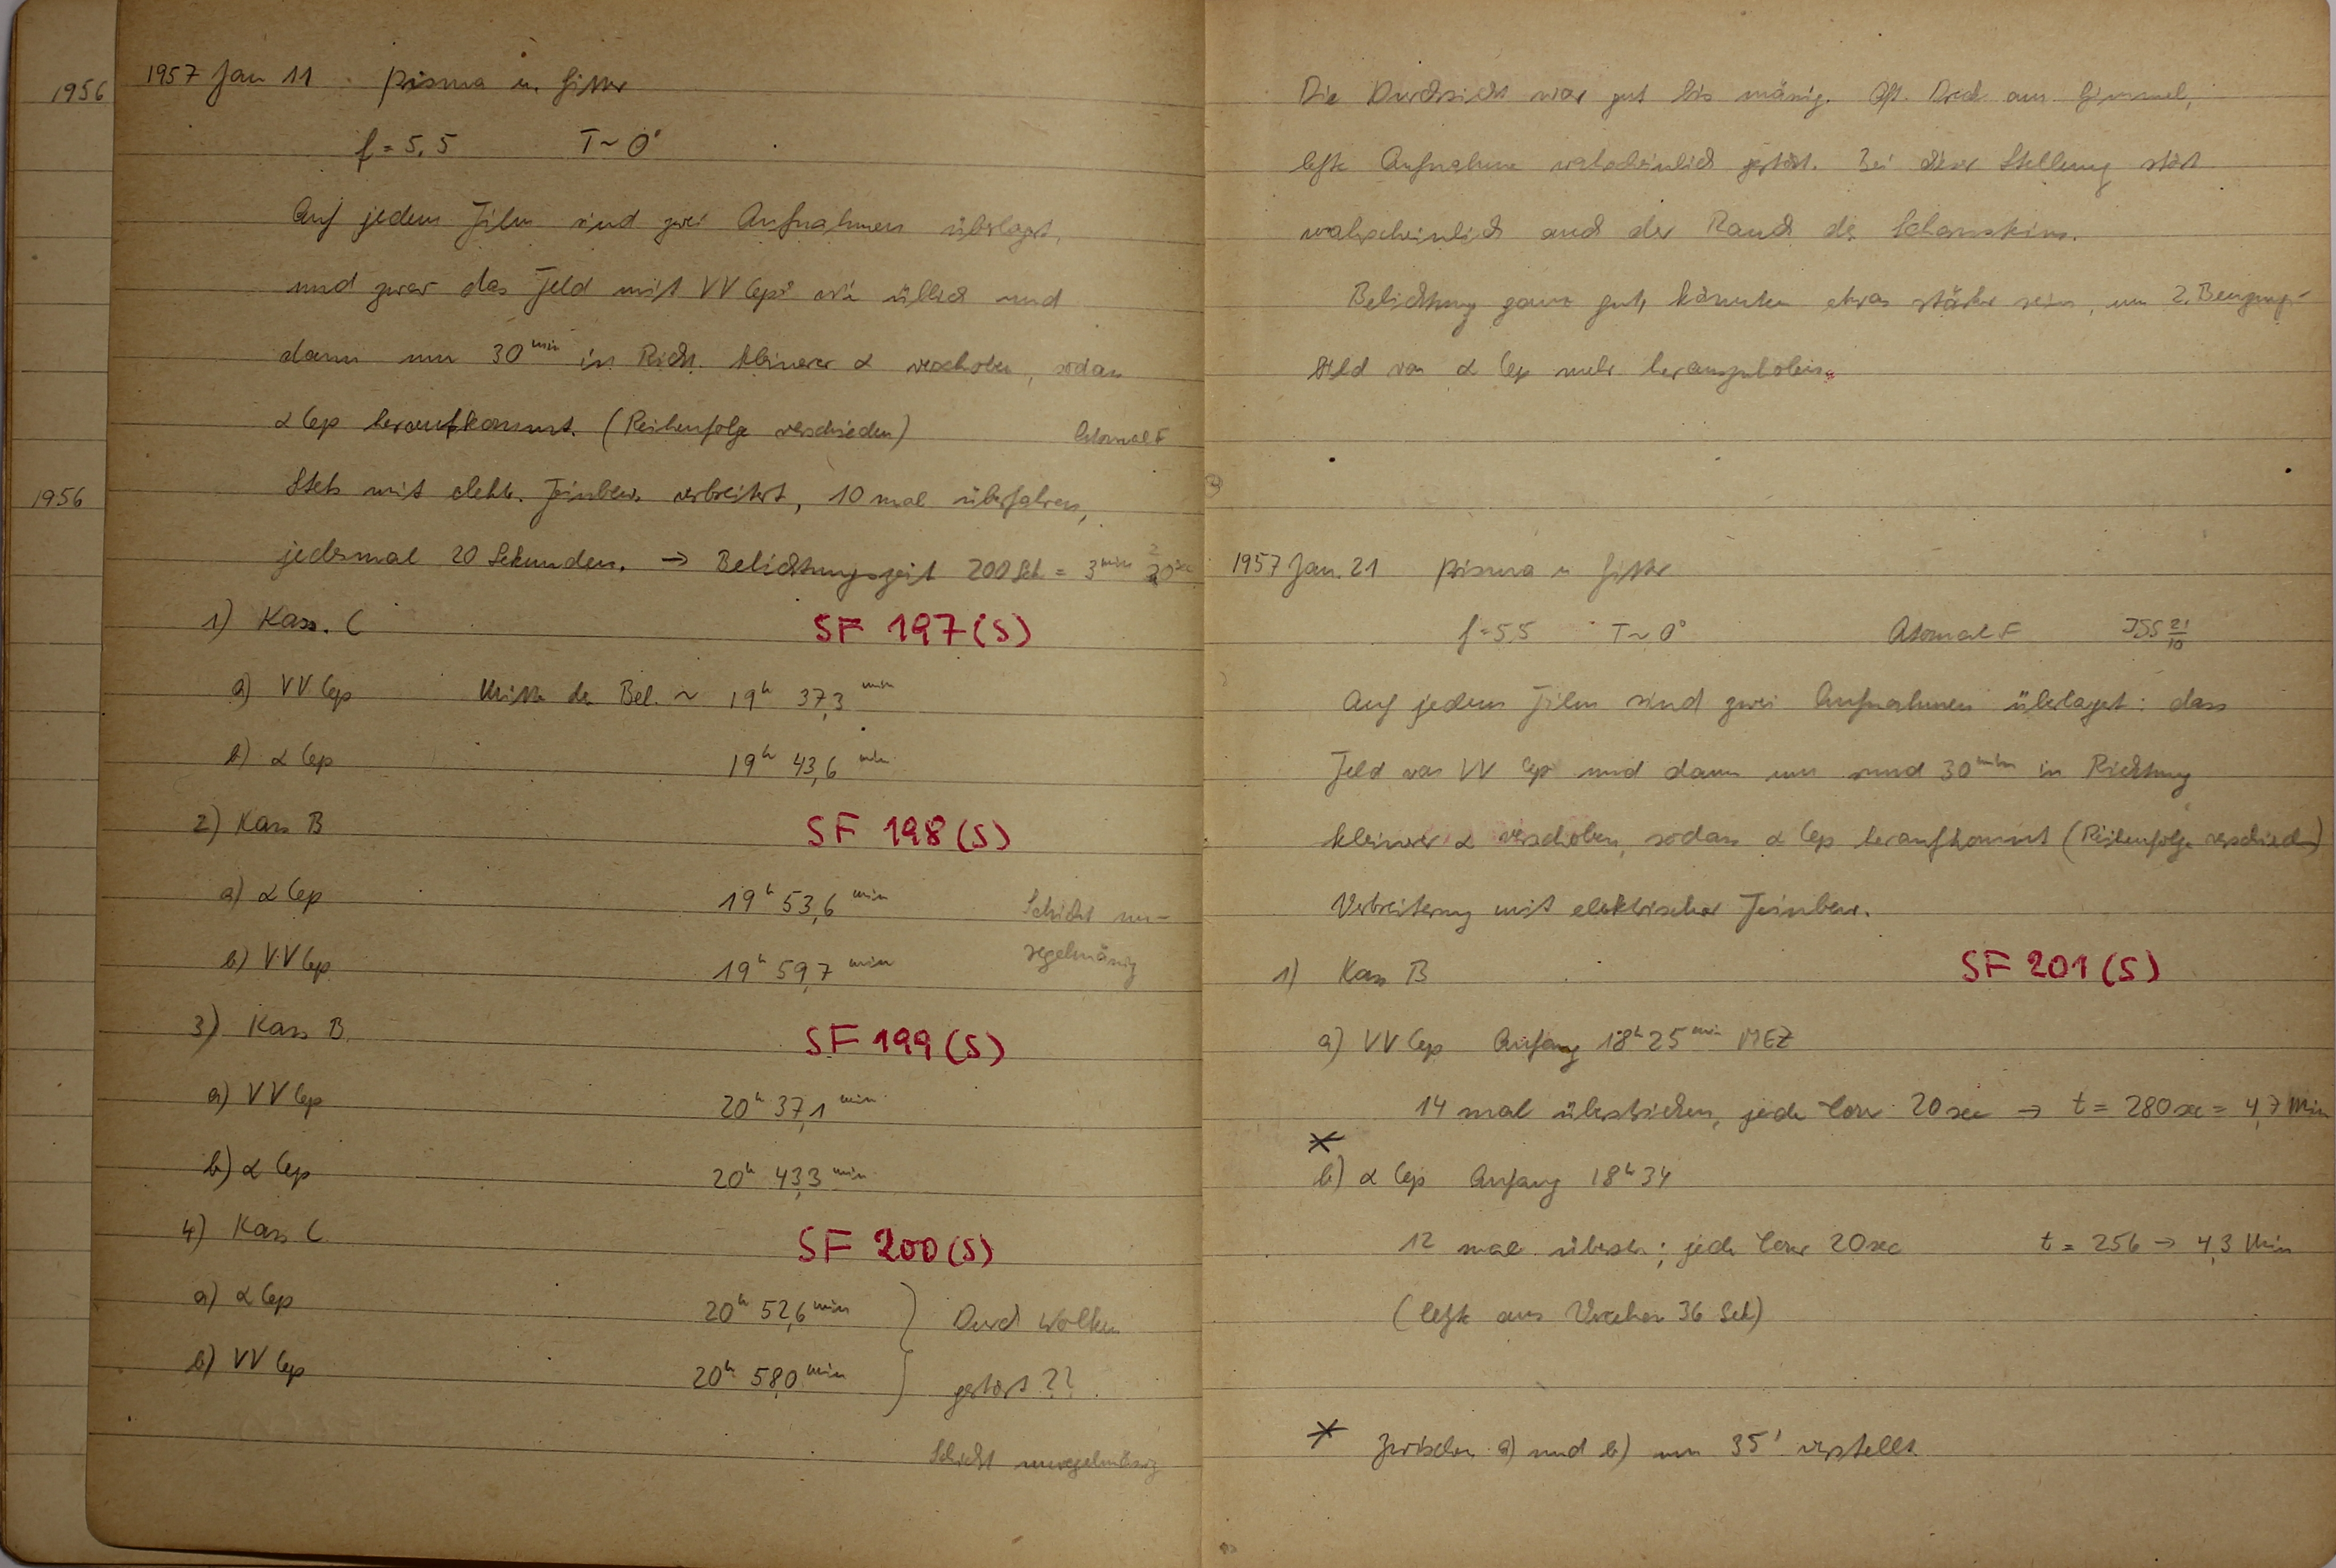 1956
1957 Jan 11 Prisma u. Gitter
f = 5,5 T ~ 0°
Auf jedem Film sind zwei Aufnahmen überlagert,
und zwar das Feld mit VV Cep wie üblich und
dann um 30 min in Richt. kleinerer α verschoben, sodass
α Cep heraufkommt. (Reihenfolge verschieden)
Atomal F
1956
Stets mit elektr. Feinbew. verbreitert, 10 mal überfahren,
jedesmal 20 Sekunden. → Belichtungszeit 200 Sek = 3 min 20 sec
1) Kass. C SF 197 (S)
a) VV Cep Mitte der Bel. ~ 19h 37,3 min
b) α Cep 19h 43,6 min
2) Kass B SF 198 (S)
a) α Cep 19h 53,6 min Schicht un-
b) VV Cep 19h 59,7 min regelmässig
3) Kass B SF 199 (S)
a) VV Cep 20h 37,1 min
b) α Cep 20h 43,3 min
4) Kass C SF 200 (S)
a) α Cep 20h 52,6 min Durch Wolken
b) VV Cep 20h 58,0 min gestört ??
Schicht unregelmässig
Die Durchsicht war gut bis mässig. Oft am Himmel,
letzte Aufnahme wahrscheinlich gestört. Bei dieser Stellung stört
wahrscheinlich auch der Rand des
Belichtung ganz gut, könnten etwas stärker sein, um 2. Beugungs-
bild von α Cep mehr herauszuholen.
1957 Jan. 21 Prisma u Gitter
f = 5,5 T ~ 0° Atomal F ISS 21/10
Auf jedem Film sind zwei Aufnahmen überlagert: dass
Feld von VV Cep und dann um rund 30 min in Richtung
kleinerer α verschoben, sodass α Cep heraufkommt (Reihenfolge verschieden)
Verbreiterung mit elektrischer Feinbew.
1) Kass B SF 201 (S)
a) VV Cep Anfang 18h 25 min MEZ
14 mal überstrichen, jede Tour 20 sec → t = 280 sec = 4,7 Min
*
b) α Cep Anfang 18h 34
12 mal überstr; jede Tour 20 sec t = 256 → 4,3 Min
(letzte aus Versehen 36 Sek)
* Zwischen a) und b) um 35' verstellt